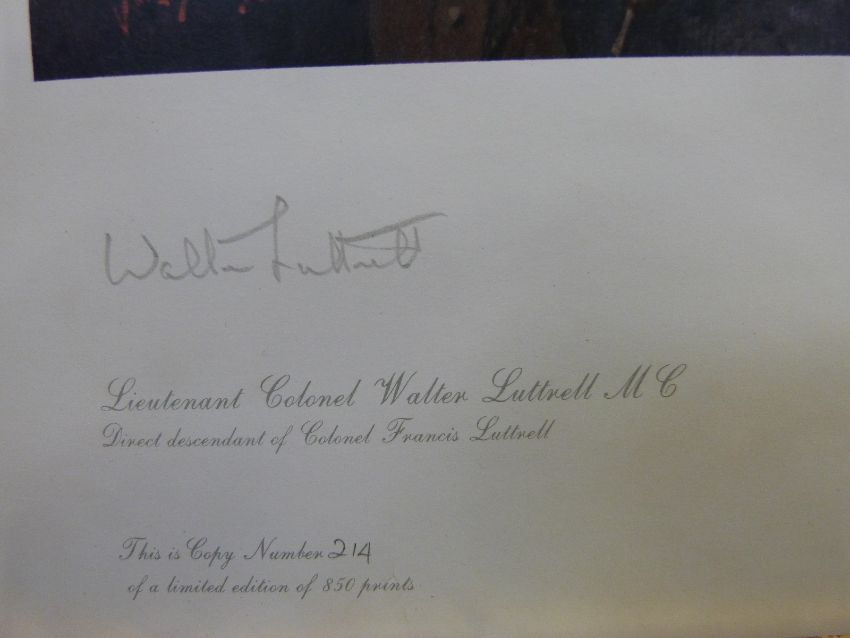 Walter Luttrell
Lieutenant Colonel Walter Luttrell MC
Direct descendant of Colonel Francis Luttrell
This is Copy Number 214
of a limited edition of 850 prints